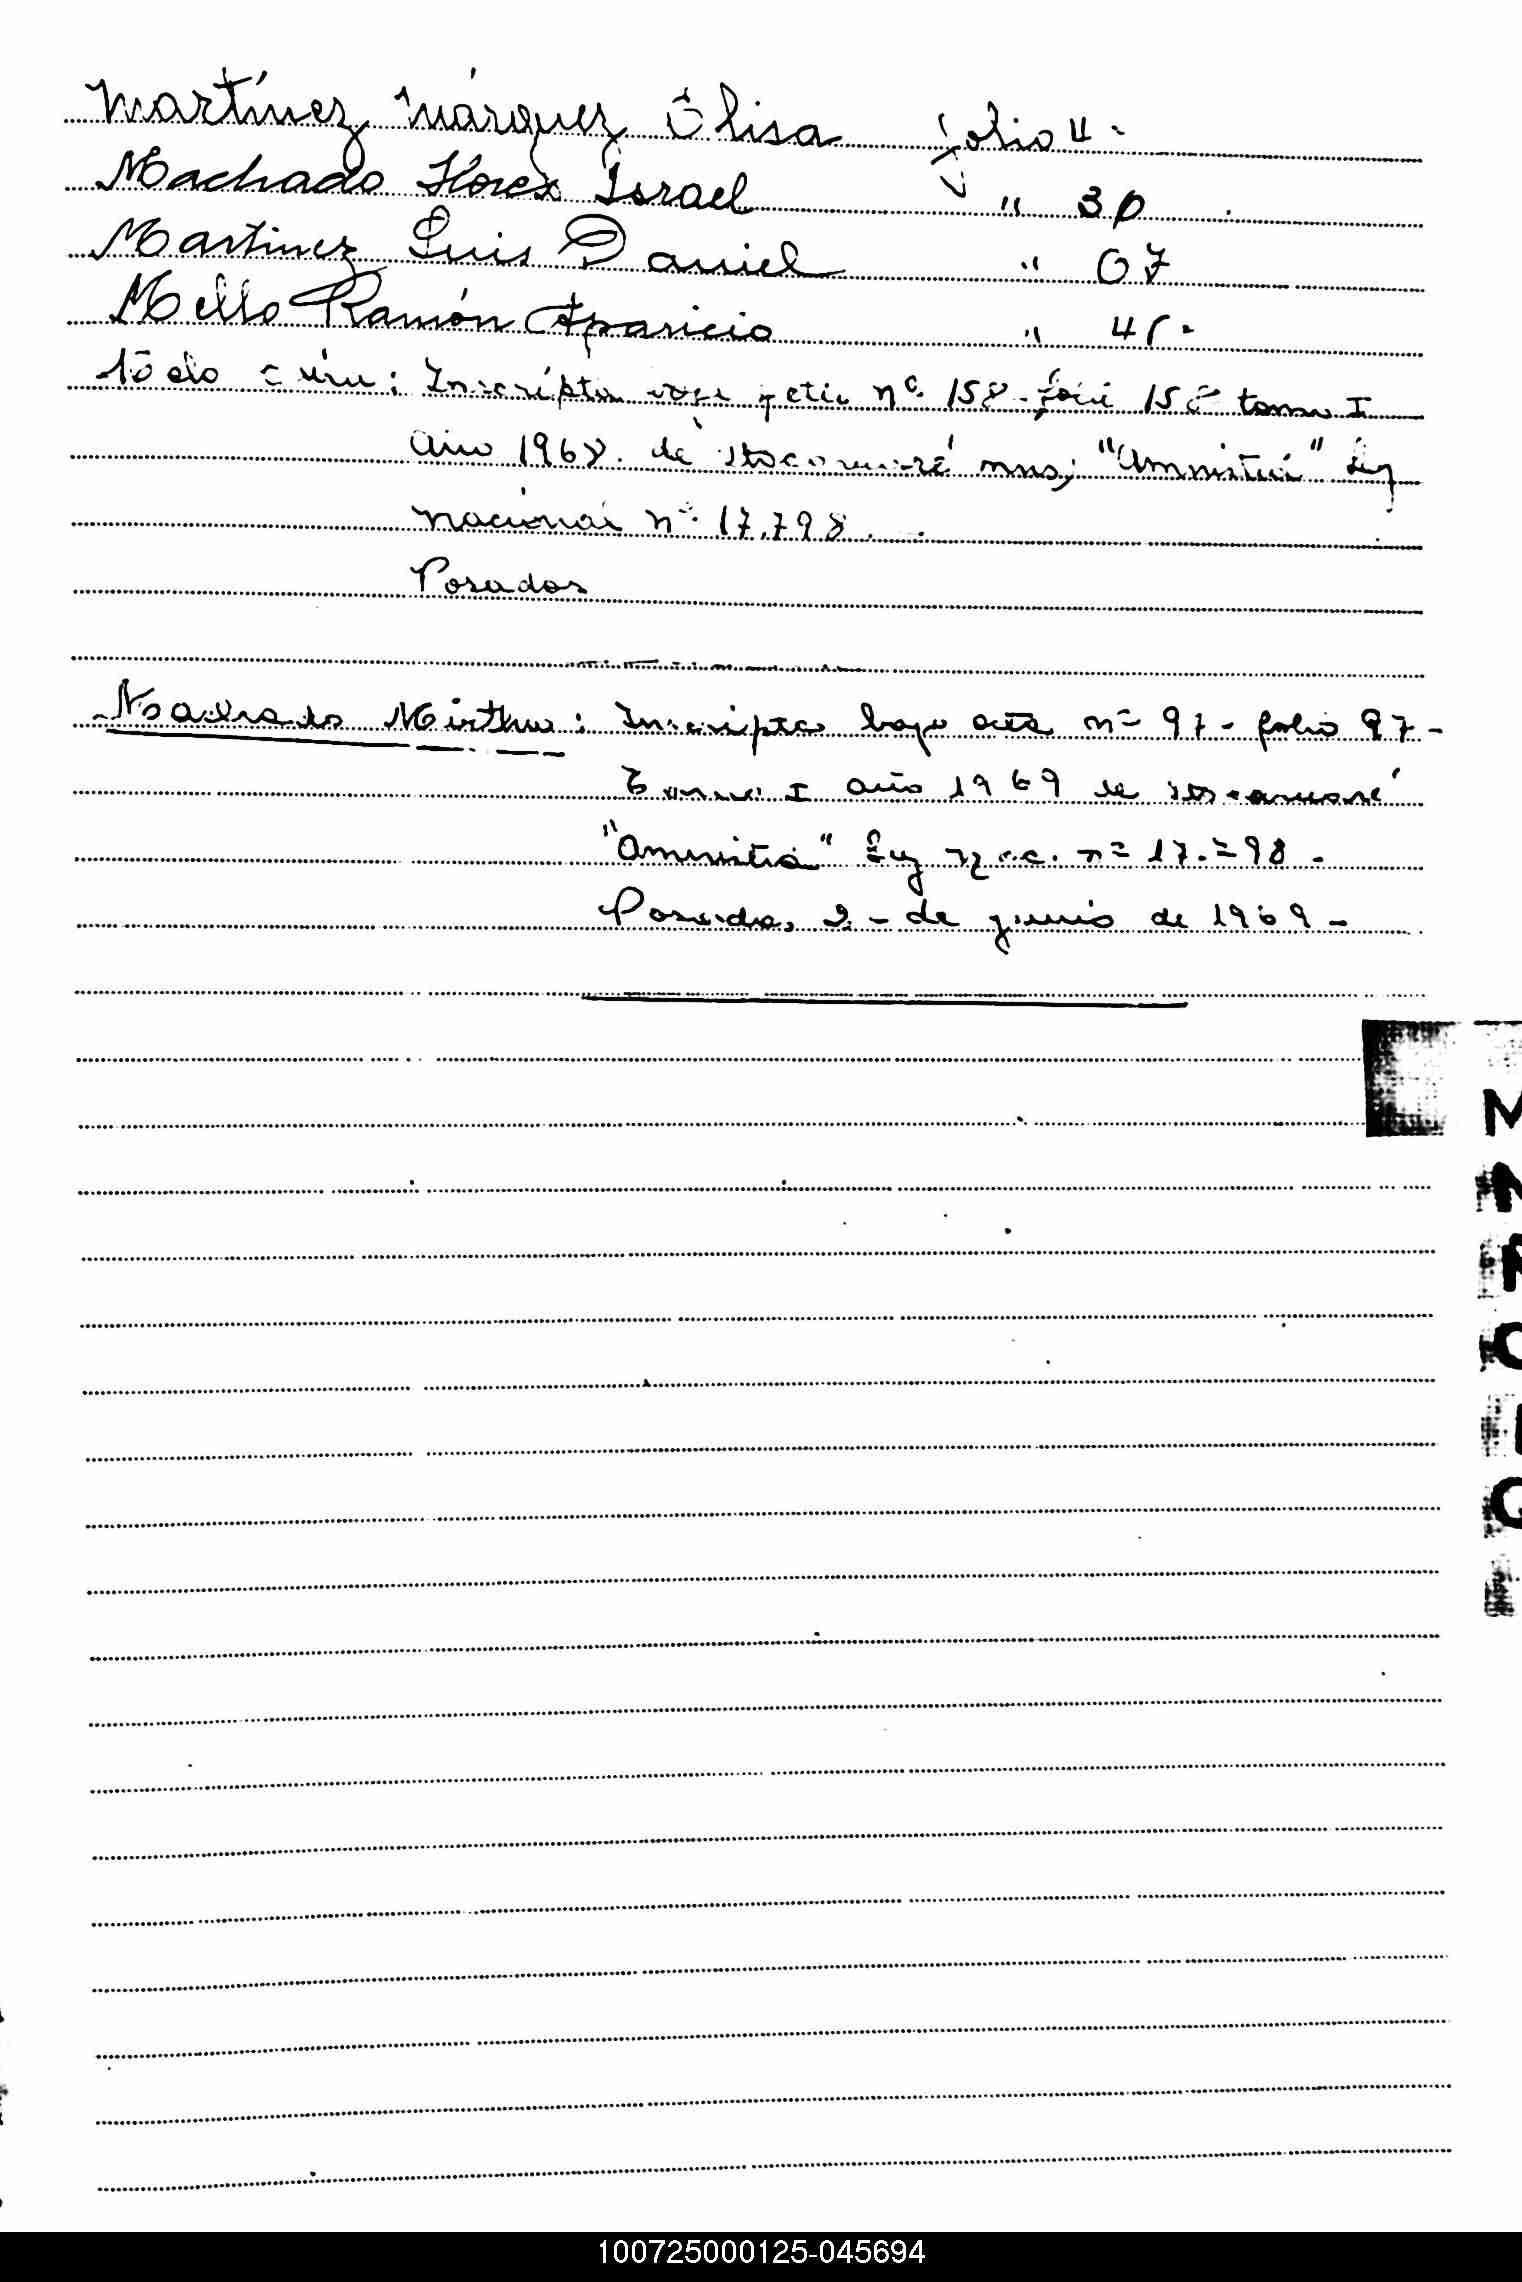 Martínez Márquez Elisa folio 4.
Machado Flores Israel " 30
Martinez Luis Daniel " 07
Mello Ramón Aparicio "
: Inscripta nº 158 158 tomo I
año 1968. de "Amnistia" Ley
nacional nº 17.798.
Posadas
Mirtha: Inscripta bajo acta nº 97 - folio 97 -
Tomo I año 1969 de
"Amnistia" Ley nº 17.798 -
Posadas, 2 - de junio de 1969 -
M
N
Ñ
O
Q
100725000125-045694